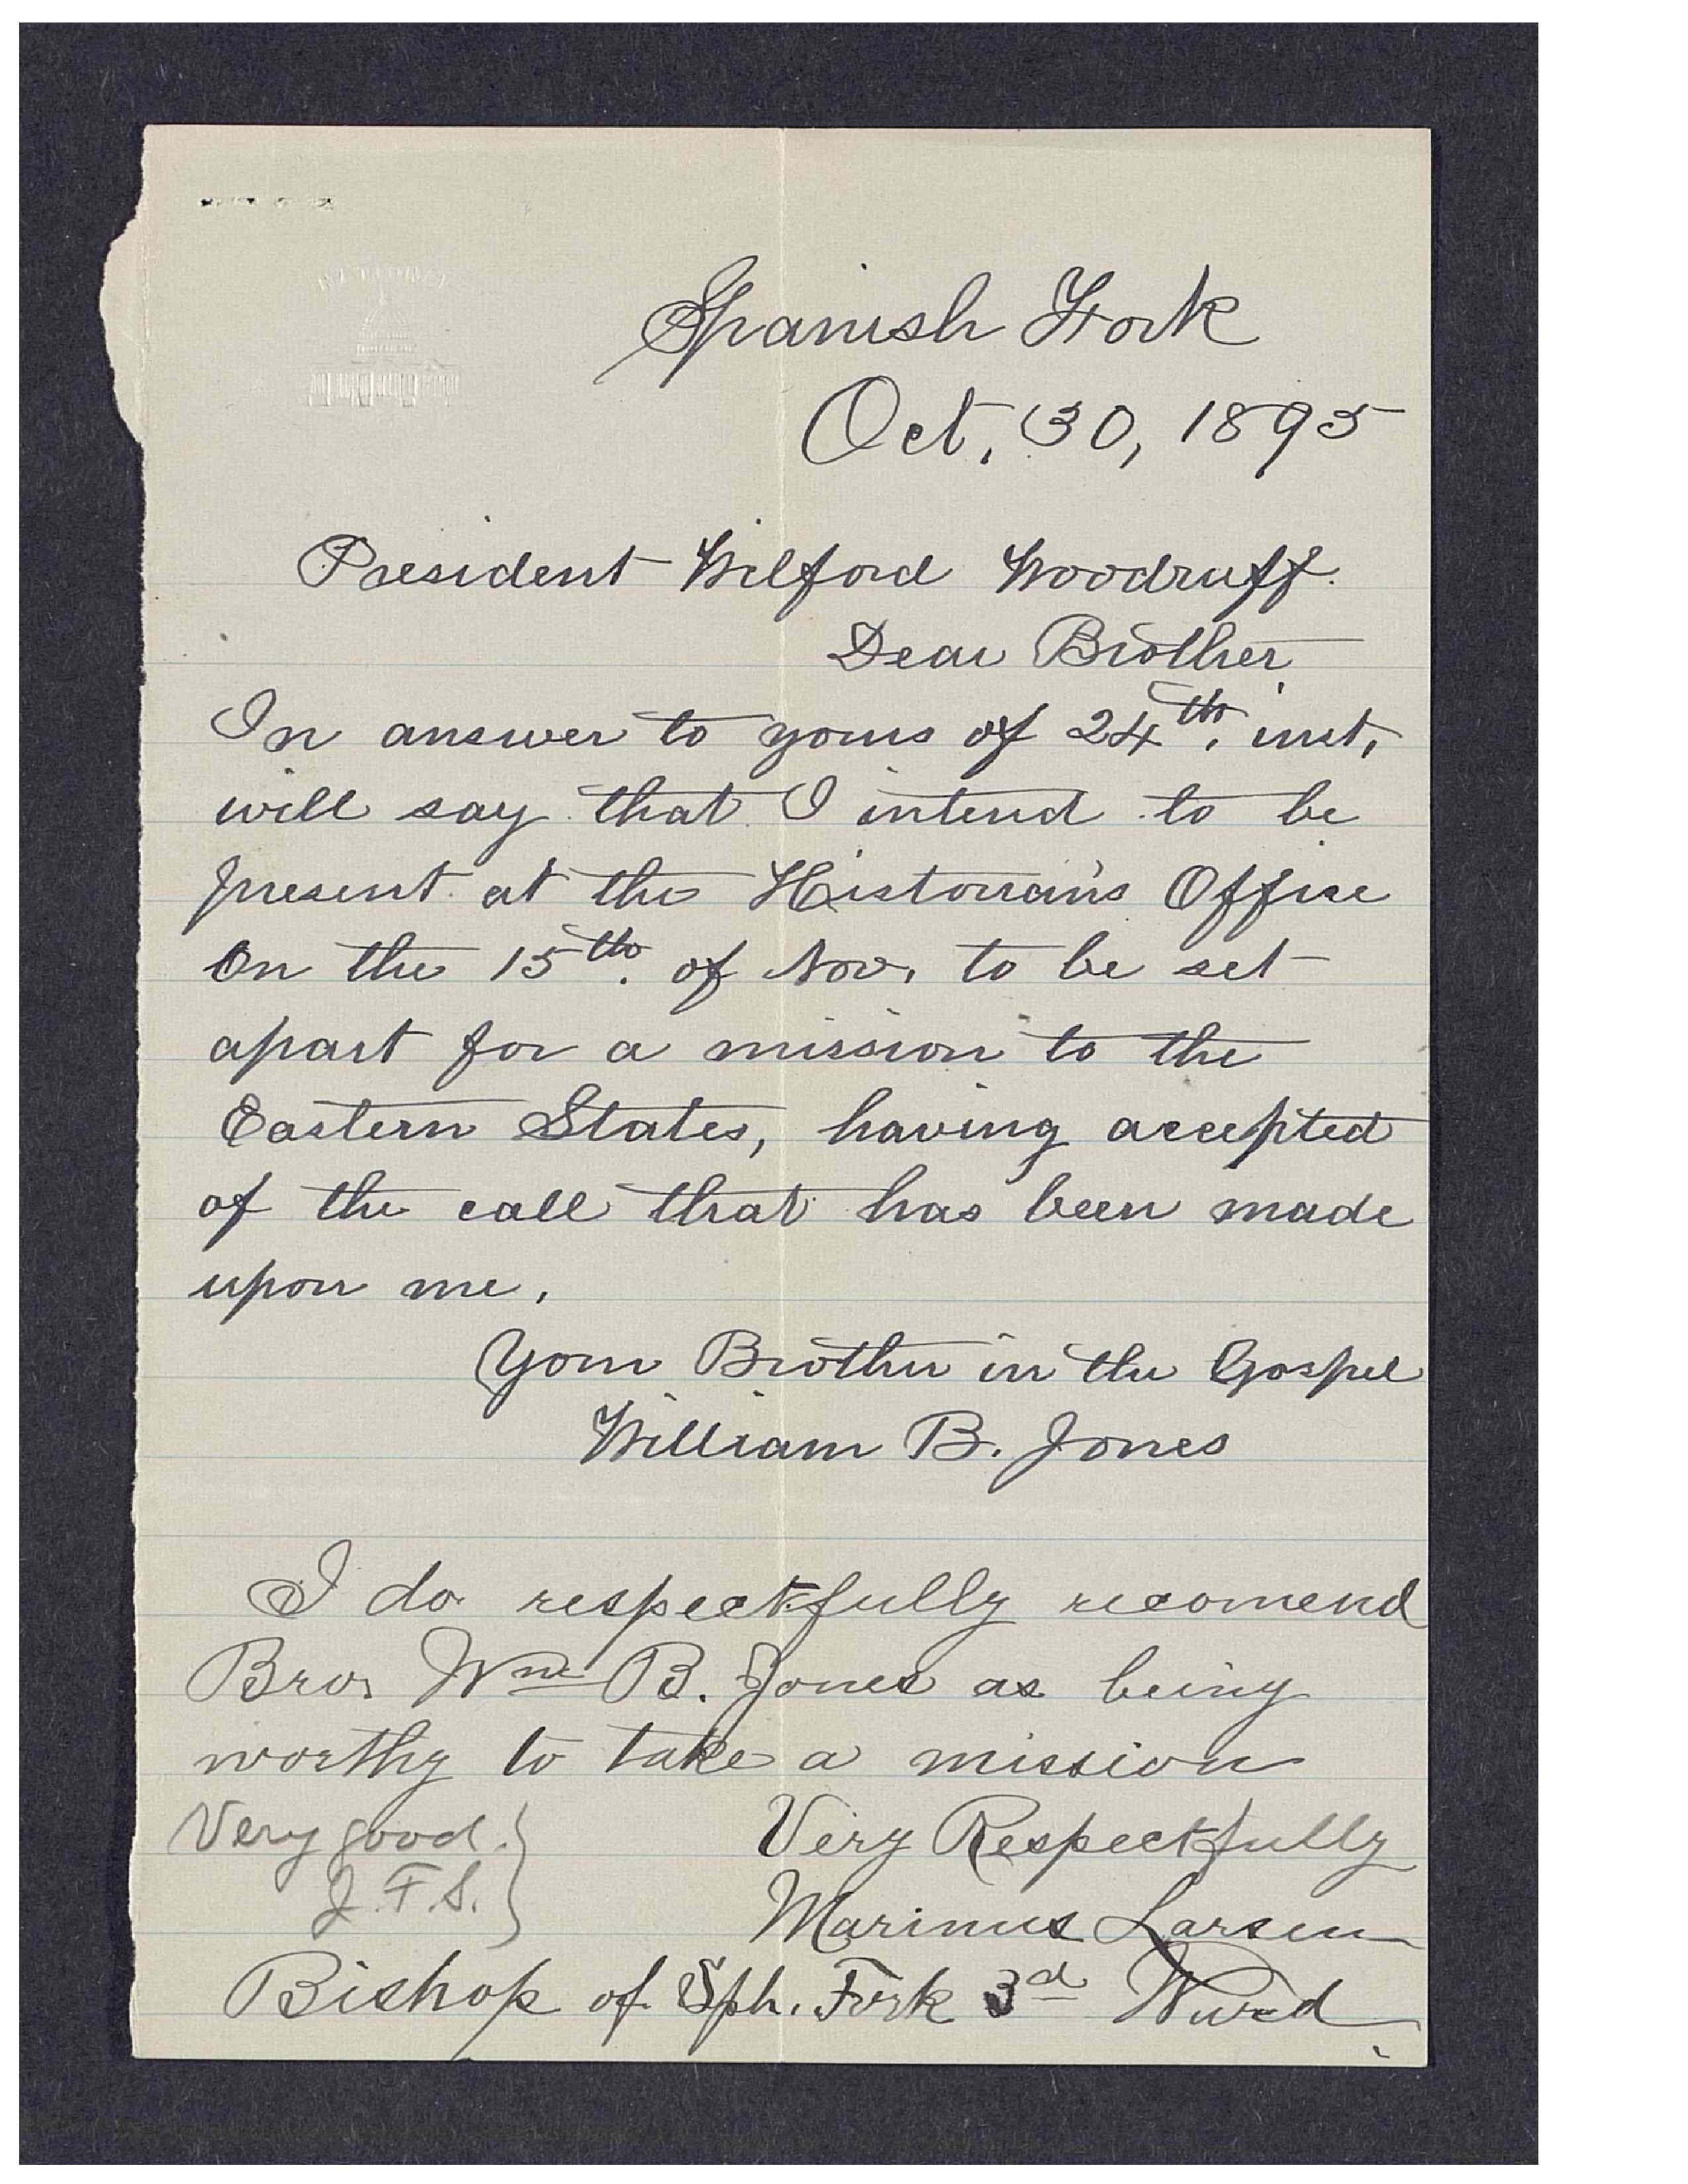 Spanish Fork
Oct. 30, 1895
President Wilford Woodruff.
Dear Brother,
In answer to yours of 24th. inst,
will say that I intend to be
present at the Historian's Office
On the 15th. of Nov. to be set
apart for a mission to the
Eastern States, having accepted
of the call that has been made
upon me.
Your Brother in the Gospel
William B. Jones
I do respectfully recomend
Bro. Wm B. Jones as being
worthy to take a mission
Very Respectfully
Marinus Larsen
Bishop of Sph. Fork 3d Ward
Very good.
J. F. S.